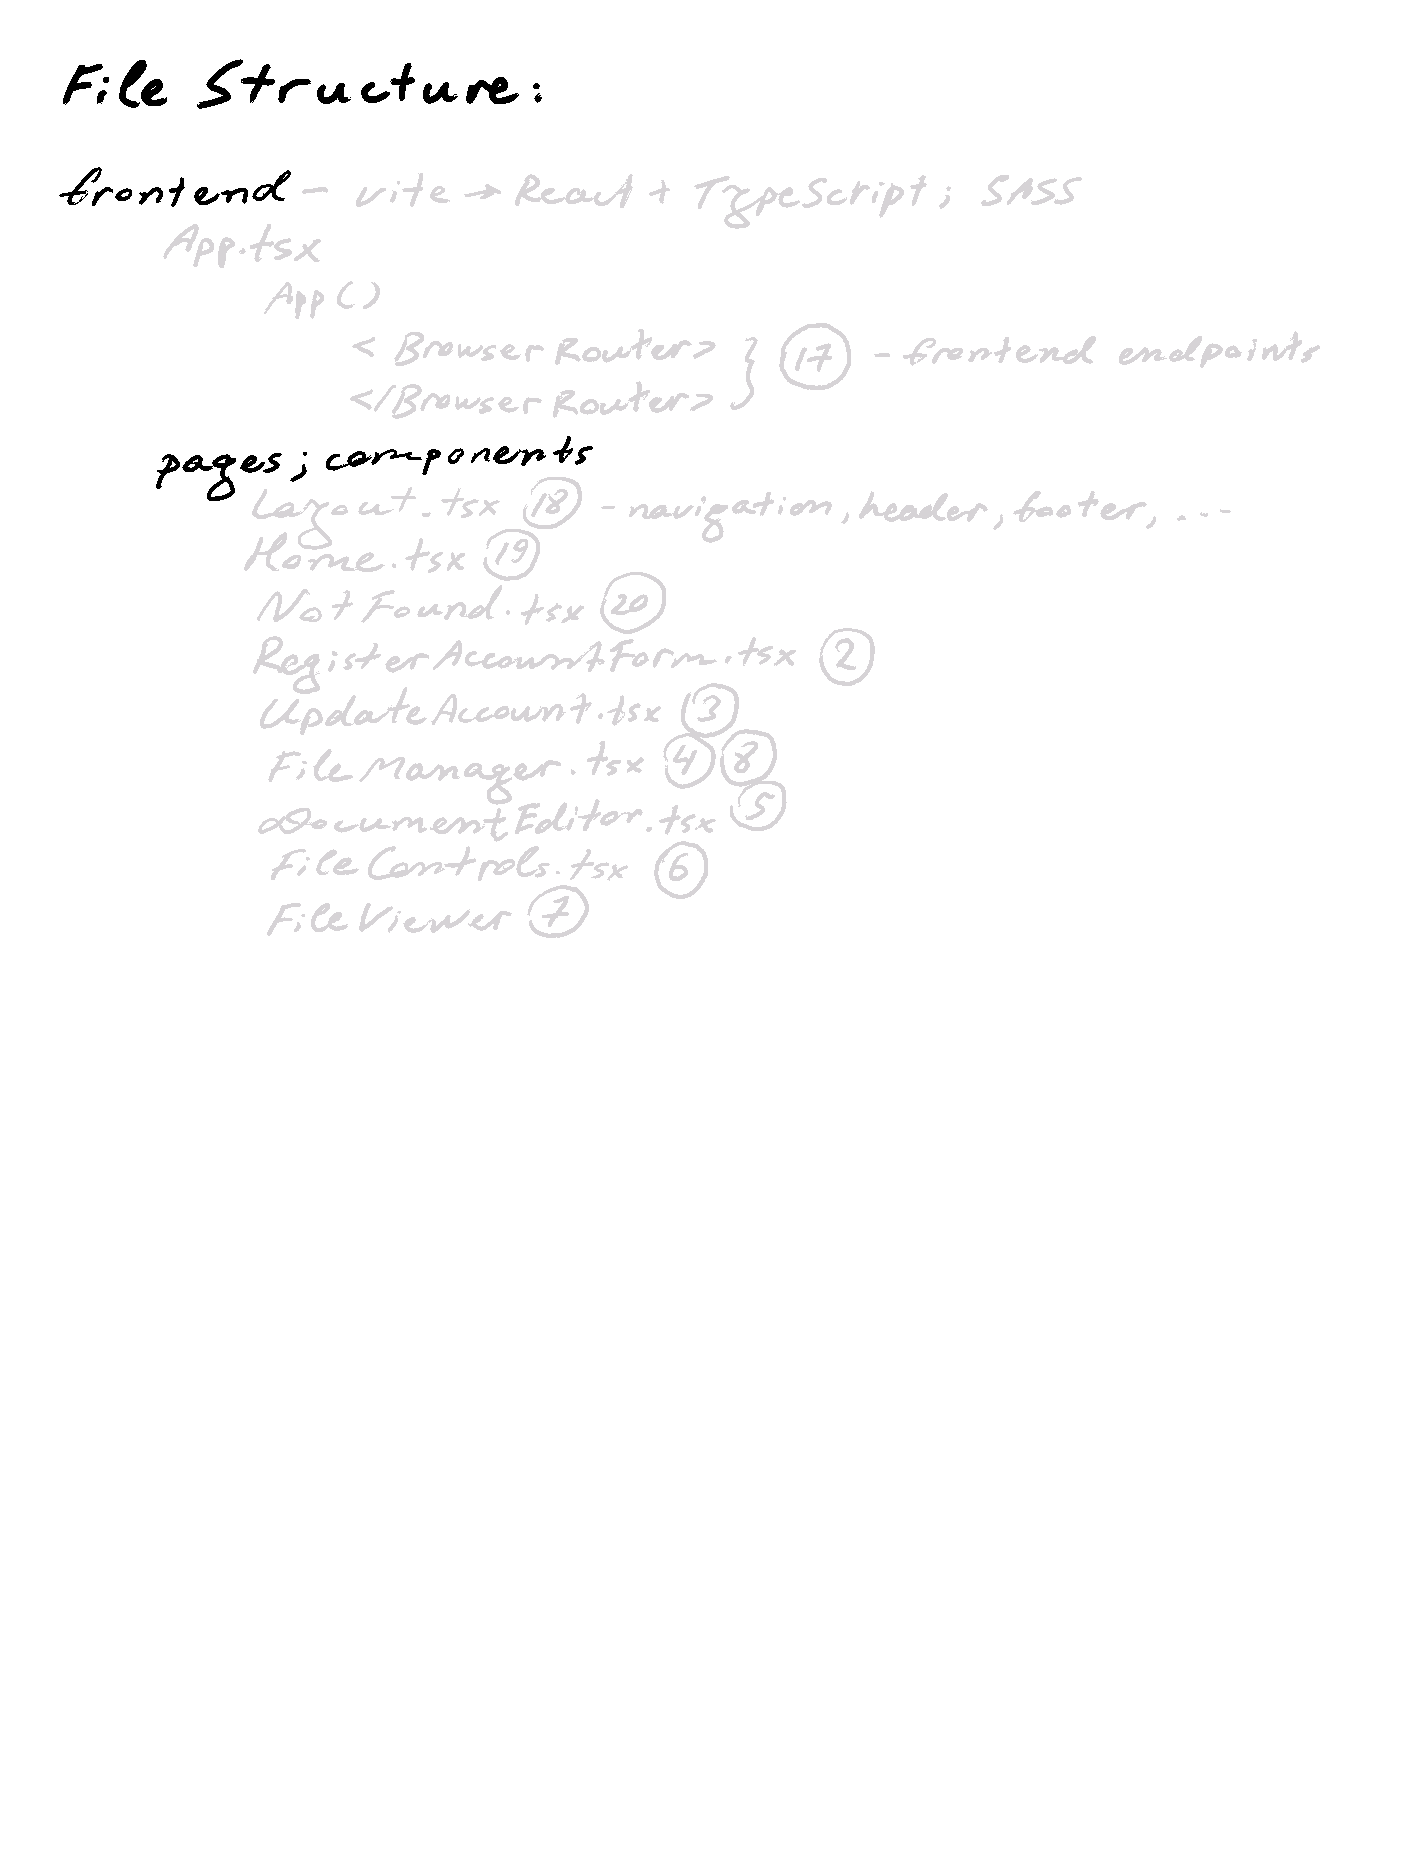 File Structure:
frontend - vite → React + TypeScript; SASS
App.tsx
App()
<BrowserRouter> } 17 - frontend endpoints
</BrowserRouter>
pages; components
Layout.tsx 18 - navigation, header, footer, ...
Home.tsx 19
NotFound.tsx 20
RegisterAccountForm.tsx 2
UpdateAccount.tsx 3
FileManager.tsx 4 8
DocumentEditor.tsx 5
FileControls.tsx 6
FileViewer 7